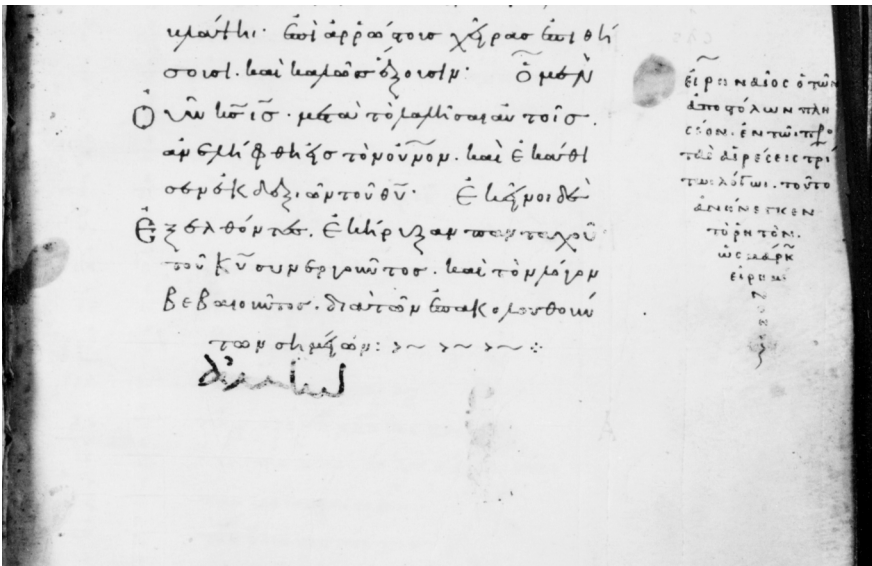 βλάψηι· ἐπὶ ἀρρώστους χεῖρας ἐπιθή
σουσι. καὶ καλῶς ἕξουσιν· ὁ μὲν
Οὖν κ̅ς̅ ι̅ς̅· μετὰ τὸ λαλῆσαι αὐτοῖς.
ἀνελήφθη εἰς τὸν οὐ̅ν̅ο̅ν. καὶ ἐκάθι
σεν ἐκ δεξιῶν τοῦ θ̅υ̅· Ἐκεῖνοι δὲ
Ἐξελθόντες. ἐκήρυξαν πανταχοῦ·
τοῦ κ̅υ̅ συνεργοῦντος. καὶ τὸν λόγον
βεβαιοῦντος. διὰ τῶν ἐπακολουθούν
των σημείων:
εἰρηναῖος ὁ τῶν
ἀποστόλων πλη
σίον. ἐν τῶι πρὸ
τὰς αἱρέσεις τρί
τωι λόγωι. τοῦτο
ἀνήνεγκεν
τὸ ῥητὸν.
ὡς μάρκ
εἰρημ